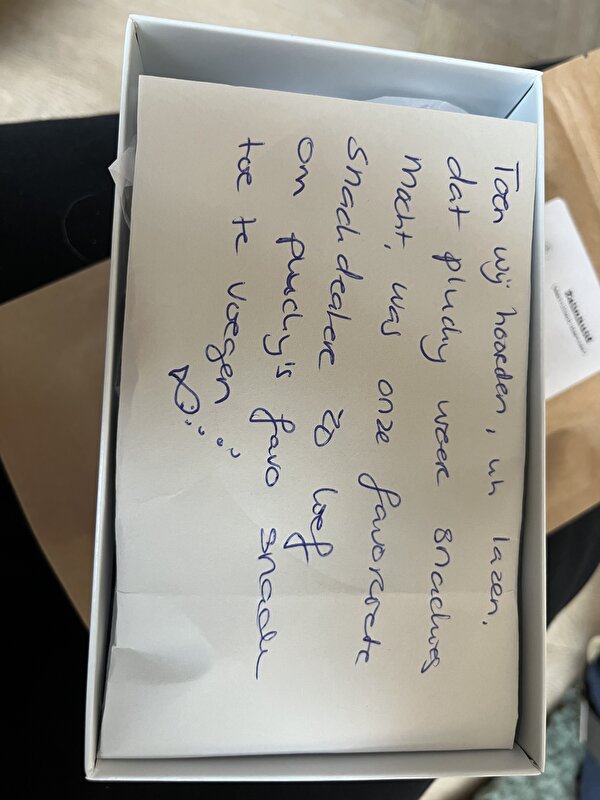 Toen wij hoorden, uh lazen,
dat pludy weer snackjes
mocht, was onze favoriete
snackdealer zo lief
om pludy's favo snack
toe te voegen